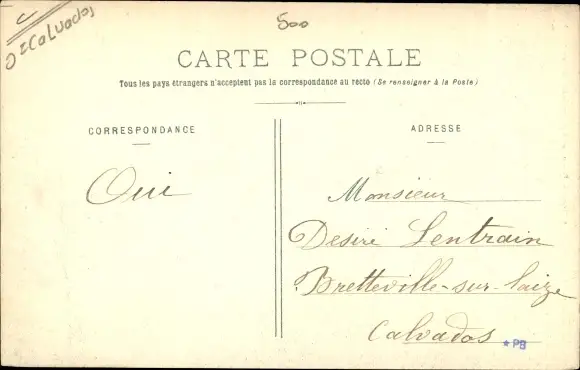 500
Calvados
CARTE POSTALE
Tous les pays étrangers n'acceptent pas la correspondance au recto (Se renseigner à la Poste)
CORRESPONDANCE
ADRESSE
Oui
Monsieur
Desiré Lentrain
Bretteville-sur-laize
Calvados
*PB